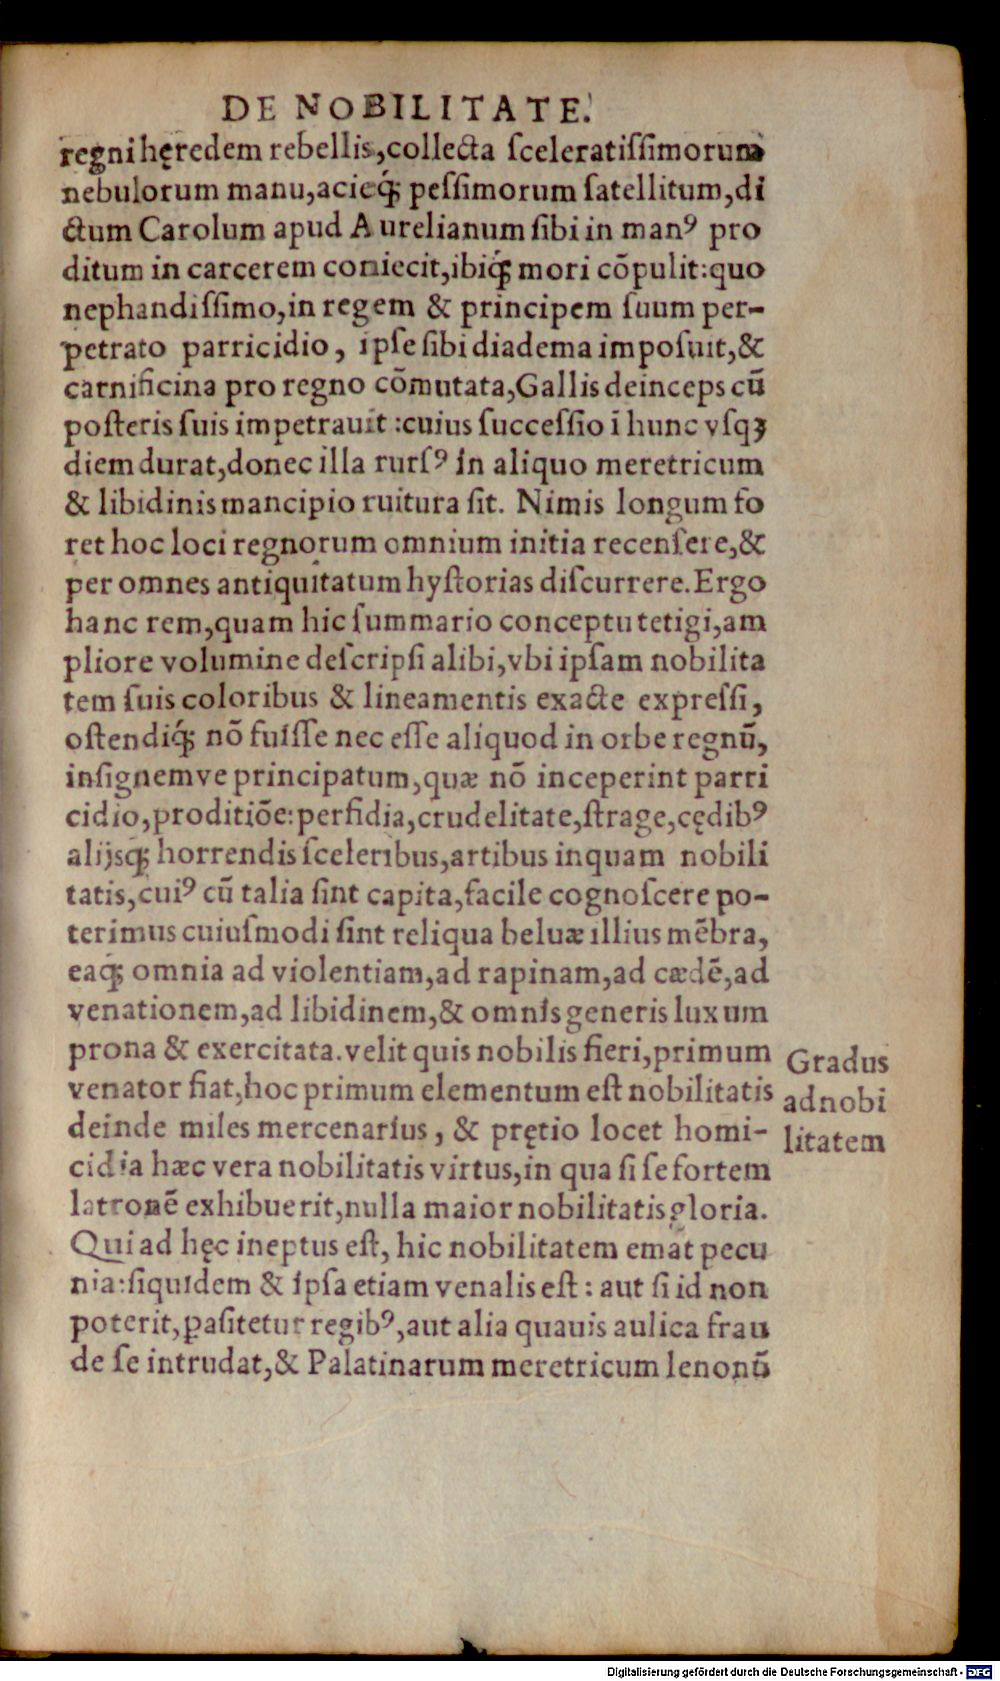 DE NOBILITATE.
regni hęredem rebellis, collecta ſceleratiſſimorum
nebulorum manu, acieq́; peſſimorum ſatellitum, di
ctum Carolum apud Aurelianum ſibi in manꝰ pro
ditum in carcerem coniecit, ibiq́; mori cõpulit: quo
nephandiſſimo, in regem & principem ſuum per-
petrato parricidio, ipſe ſibi diadema impoſuit, &
carnificina pro regno cõmutata, Gallis deinceps cũ
poſteris ſuis impetrauit: cuius ſucceſſio ĩ hunc vſqꝫ
diem durat, donec illa rurſꝰ in aliquo meretricum
& libidinis mancipio ruitura ſit. Nimis longum fo
ret hoc loci regnorum omnium initia recenſere, &
per omnes antiquitatum hyſtorias diſcurrere. Ergo
hanc rem, quam hic ſummario conceptu tetigi, am
pliore volumine deſcripſi alibi, vbi ipſam nobilita
tem ſuis coloribus & lineamentis exacte expreſſi,
oſtendiq́; nõ fuiſſe nec eſſe aliquod in orbe regnũ,
inſignemve principatum, quæ nõ inceperint parri
cidio, proditiõe: perfidia, crudelitate, ſtrage, cędibꝰ
alijsq́; horrendis ſceleribus, artibus inquam nobili
tatis, cuiꝰ cũ talia ſint capita, facile cognoſcere po-
terimus cuiuſmodi ſint reliqua beluæ illius mẽbra,
eaq́; omnia ad violentiam, ad rapinam, ad cædẽ, ad
venationem, ad libidinem, & omnis generis luxum
prona & exercitata. velit quis nobilis fieri, primum
venator fiat, hoc primum elementum eſt nobilitatis
deinde miles mercenarius, & pretio locet homi-
cidia hæc vera nobilitatis virtus, in qua ſi ſe fortem
latronẽ exhibuerit, nulla maior nobilitatis gloria.
Qui ad hęc ineptus eſt, hic nobilitatem emat pecu
nia: ſiquidem & ipſa etiam venalis eſt: aut ſi id non
poterit, paſitetur regibꝰ, aut alia quauis aulica frau
de ſe intrudat, & Palatinarum meretricum lenonũ
Gradus
ad nobi
litatem
Digitalisierung gefördert durch die Deutsche Forschungsgemeinschaft - DFG